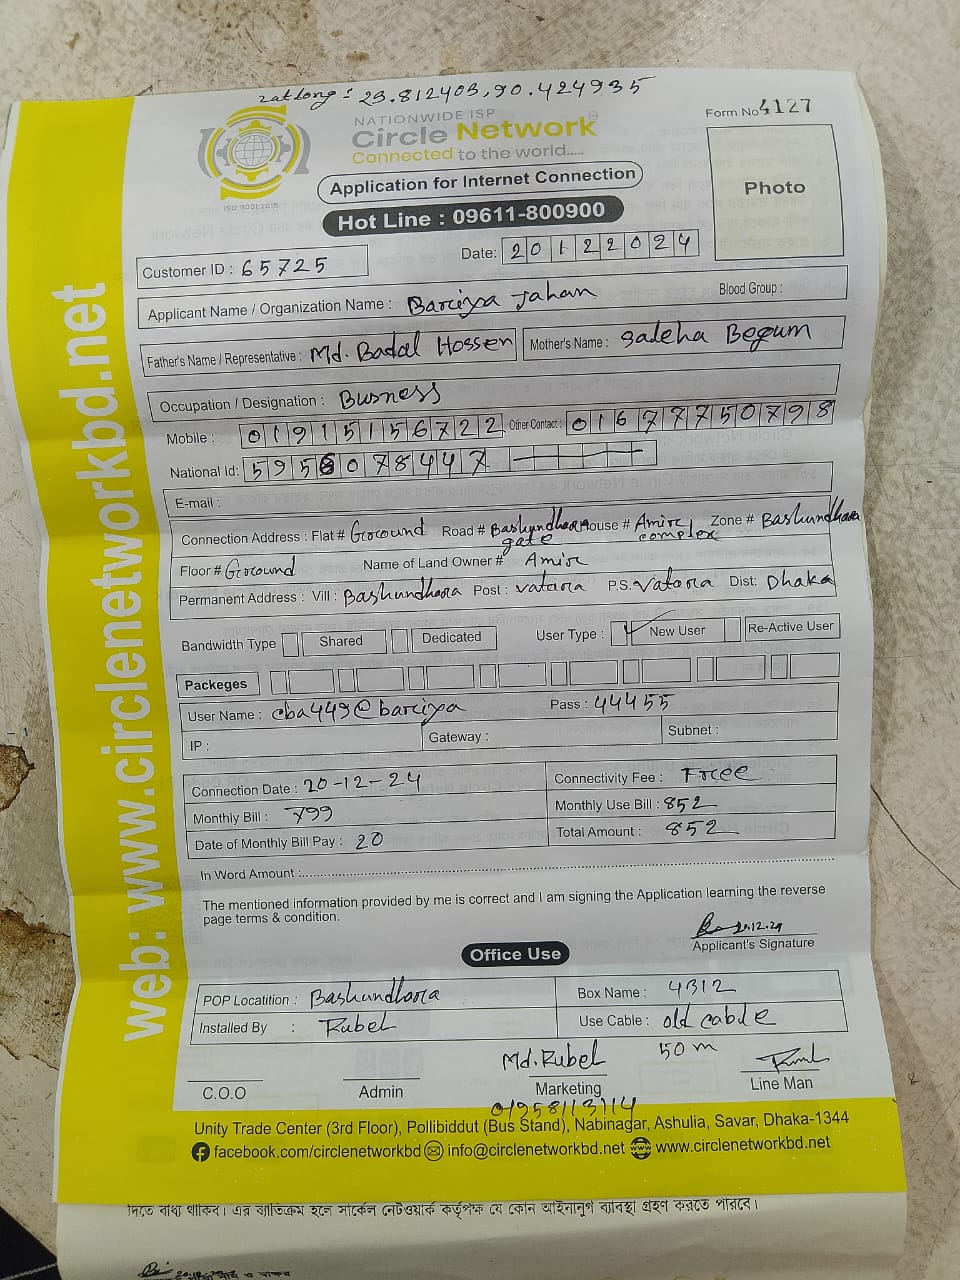 Lat Long : 23.812403, 90.424935
NATIONWIDE ISP
Circle Network
Connected to the world.....
ISO 9001:2015
Form No 4127
Photo
Application for Internet Connection
Hot Line : 09611-800900
Customer ID : 65725
Date: 20122024
Applicant Name / Organization Name : Bariya Jahan
Blood Group :
Father's Name / Representative : Md. Badal Hossen Mother's Name : Saleha Begum
Occupation / Designation : Busness
Mobile : 01915156722 Other Contact : 01677750798
National Id: 5956078447
E-mail :
Connection Address : Flat # Ground Road # Bashundhara gate House # Amir complex Zone # Bashundhara
Floor # Ground Name of Land Owner # Amir
Permanent Address : Vill : Bashundhara Post : vatara P.S. Vatara Dist: Dhaka
Bandwidth Type Shared Dedicated User Type : New User Re-Active User
Packeges
User Name : cba449@bariya Pass : 44455
IP : Gateway : Subnet :
Connection Date : 20-12-24 Connectivity Fee : Free
Monthly Bill : 799 Monthly Use Bill : 852
Date of Monthly Bill Pay : 20 Total Amount : 852
In Word Amount :
The mentioned information provided by me is correct and I am signing the Application learning the reverse
page terms & condition.
20.12.24
Applicant's Signature
Office Use
POP Locatition : Bashundhara Box Name : 4312
Installed By : Rubel Use Cable : old cable
50 m
Md. Rubel
C.O.O Admin Marketing Line Man
01958113114
Unity Trade Center (3rd Floor), Pollibiddut (Bus Stand), Nabinagar, Ashulia, Savar, Dhaka-1344
facebook.com/circlenetworkbd info@circlenetworkbd.net www.circlenetworkbd.net
web: www.circlenetworkbd.net
দিতে বাধ্য থাকিব। এর ব্যতিক্রম হলে সার্কেল নেটওয়ার্ক কর্তৃপক্ষ যে কোন আইনানুগ ব্যবস্থা গ্রহণ করতে পারবে।